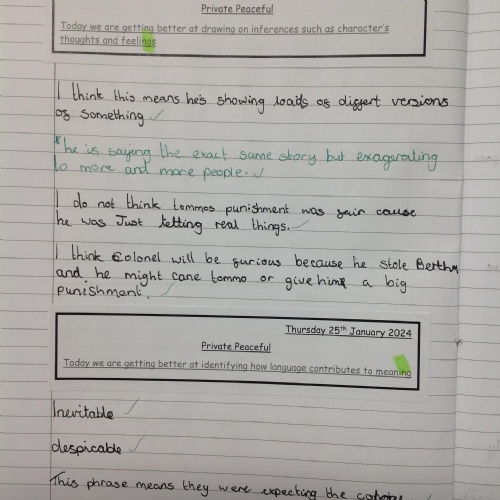 Private Peaceful
Today we are getting better at drawing on inferences such as character's
thoughts and feelings
I think this means he's showing loads of differt versions
of something
*he is saying the exact same story but exagerating
to more and more people.
I do not think tommos punishment was fair cause
he was Just telling real things.
I think Colonel will be furious because he stole Bertha
and he might cane tommo or give him a big
punishment.
Thursday 25th January 2024
Private Peaceful
Today we are getting better at identifying how language contributes to meaning
Inevitable
despicable
This phrase means they were expecting the